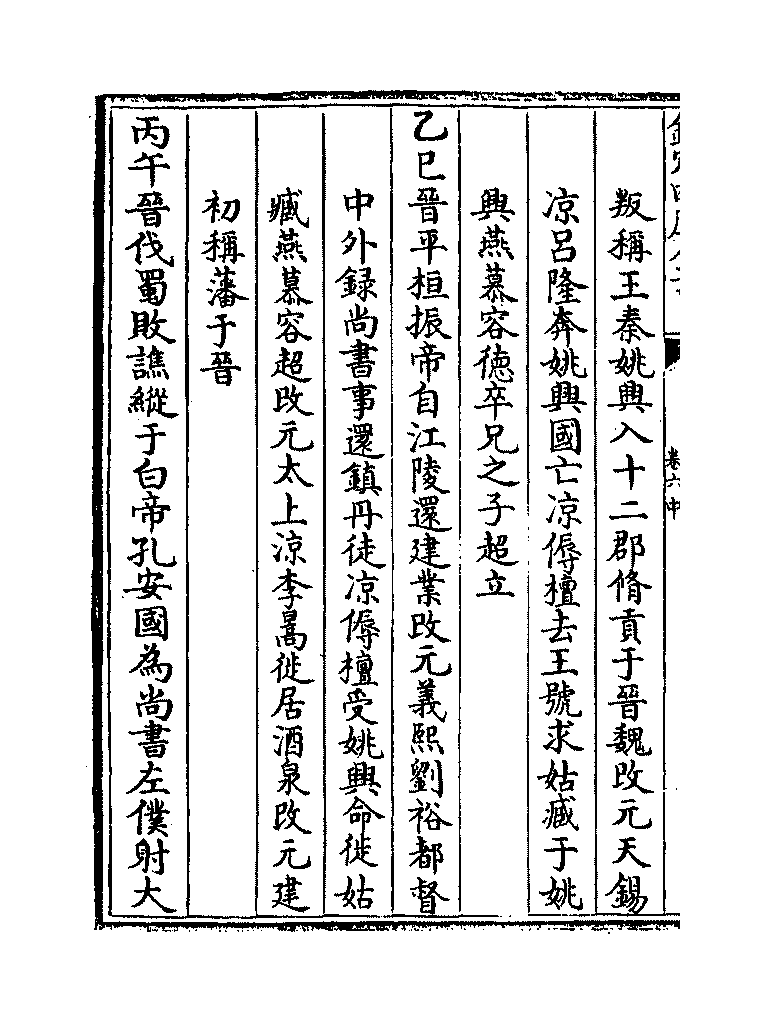 卷六中
叛稱王秦姚興入十二郡脩貢于晉魏改元天錫
凉呂隆奔姚興國亡凉傉檀去王號求姑臧于姚
興燕慕容徳卒兄之子超立
乙巳晉平桓振帝自江陵還建業改元義熙劉裕都督
中外録尚書事還鎮丹徒凉傉檀受姚興命徙姑
臧燕慕容超改元太上涼李暠徙居酒泉改元建
初稱藩于晉
丙午晉伐蜀敗譙縱于白帝孔安國為尚書左僕射大